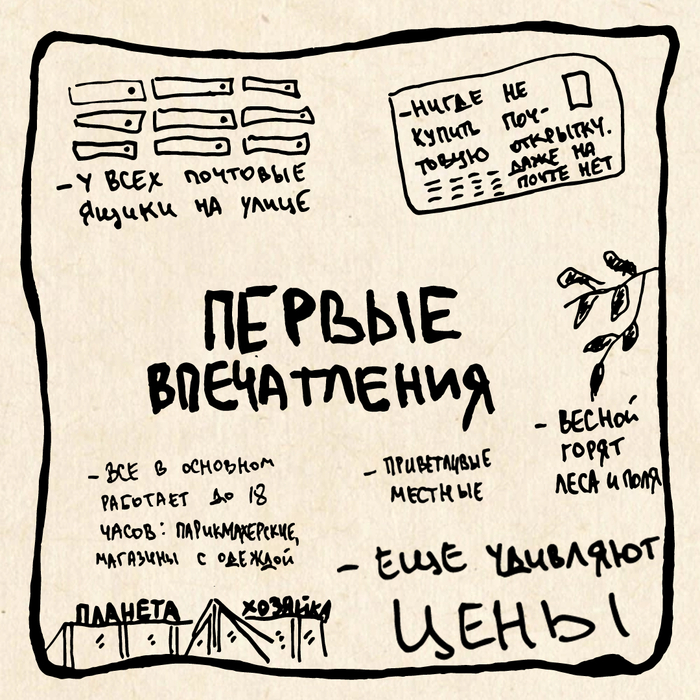 - У ВСЕХ ПОЧТОВЫЕ
ЯЩИКИ НА УЛИЦЕ
- НИГДЕ НЕ
КУПИТЬ ПОЧ-
ТОВУЮ ОТКРЫТКУ.
ДАЖЕ НА
ПОЧТЕ НЕТ
ПЕРВЫЕ
ВПЕЧАТЛЕНИЯ
- ВЕСНОЙ
ГОРЯТ
ЛЕСА И ПОЛЯ
- ВСЕ В ОСНОВНОМ
РАБОТАЕТ ДО 18
ЧАСОВ: ПАРИКМАХЕРСКИЕ,
МАГАЗИНЫ С ОДЕЖДОЙ
- ПРИВЕТЛИВЫЕ
МЕСТНЫЕ
- ЕЩЕ УДИВЛЯЮТ
ЦЕНЫ
ПЛАНЕТА ХОЗЯЙКА